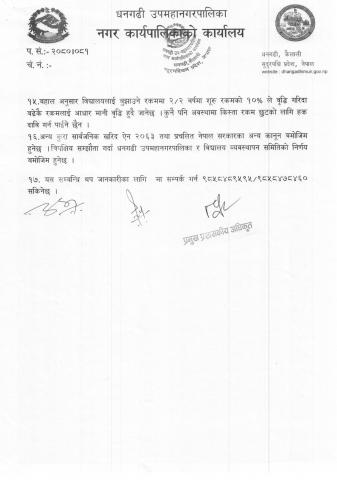 धनगढी उपमहानगरपालिका
नगर कार्यपालिकाको कार्यालय
प. सं:-२०८०।०८१
च. नं.:-
धनगढी, कैलाली
सुदूरपश्चिम प्रदेश, नेपाल
website : dhangadhimun.gov.np
१५.बहाल अनुसार विद्यालयलाई बुझाउने रकममा २/२ वर्षमा शुरु रकमको १०% ले वृद्धि गरिदा
बढेकै रकमलाई आधार मानी वृद्धि हुदै जानेछ ।कुनै पनि अवस्थामा किस्ता रकम छुटको लागि हक
दावि गर्न पाईने छैन ।
१६.अन्य कुरा सार्वजनिक खरिद ऐन २०६३ तथा प्रचलित नेपाल सरकारका अन्य कानून बमोजिम
हुनेछ ।त्रिपक्षिय सम्झौता गर्दा धनगढी उपमहानगरपालिका र विद्यालय व्यवस्थापन समितिको निर्णय
बमोजिम हुनेछ ।
१७. यस सम्बन्धि थप जानकारीका लागि मा सम्पर्क गर्न ९८५८४८९५९५/९८५८४७८४६०
सकिनेछ ।
प्रमुख प्रशासकीय अधिकृत